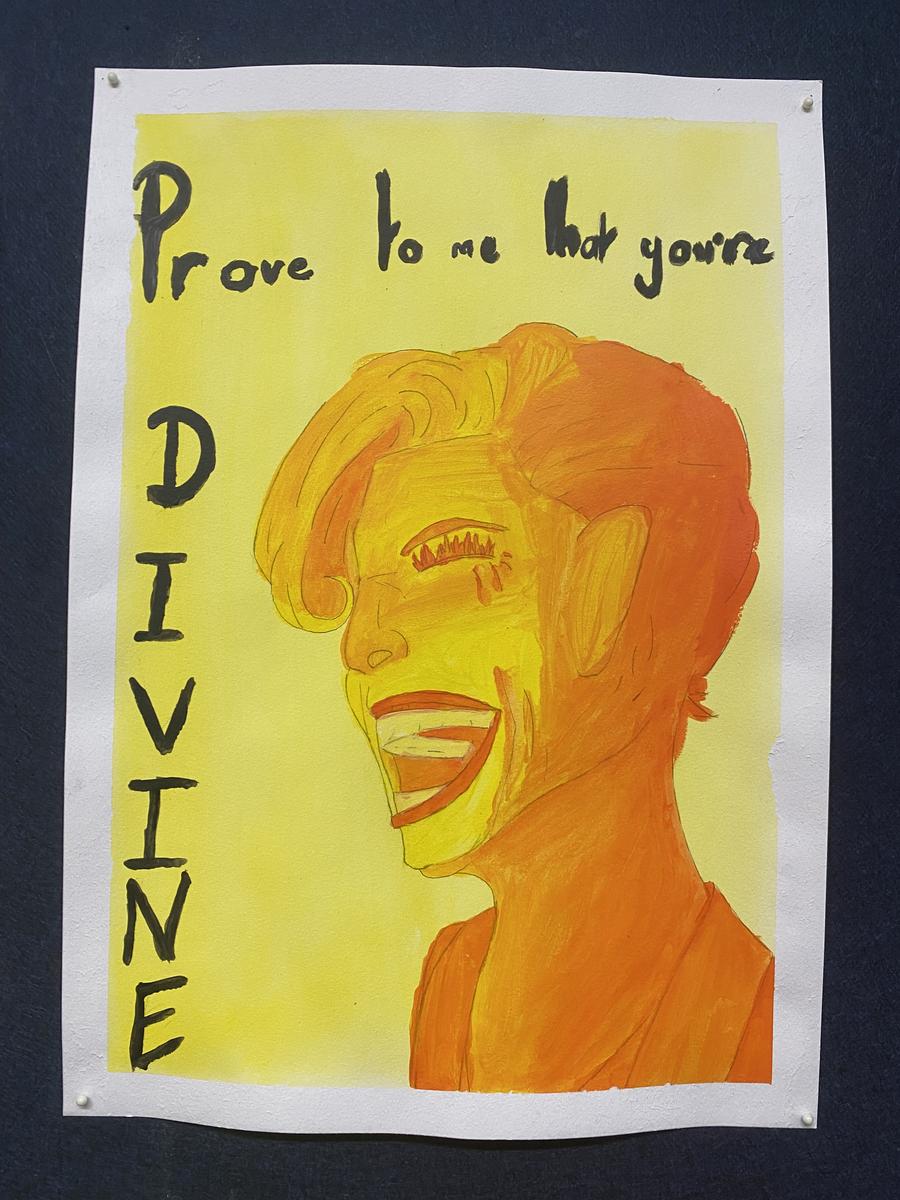 Prove to me that you're
DIVINE